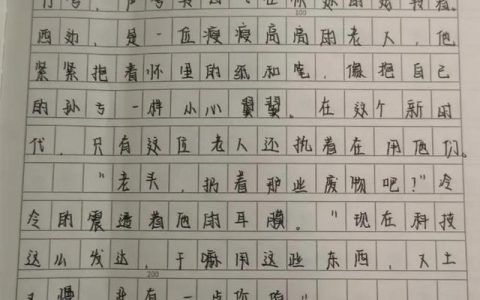 西边，是一位瘦瘦高高的老人，他
紧紧抱着怀里的纸和笔，像把自己
的孙子一样小心翼翼。在这个新时
代，只有这位老人还执着在用他们。
"老头，扔着那些废物吧？"冷
冷的震透着他的耳膜。"现在科技
这么发达，干嘛用这些东西，又土
又慢
有一点
100
200